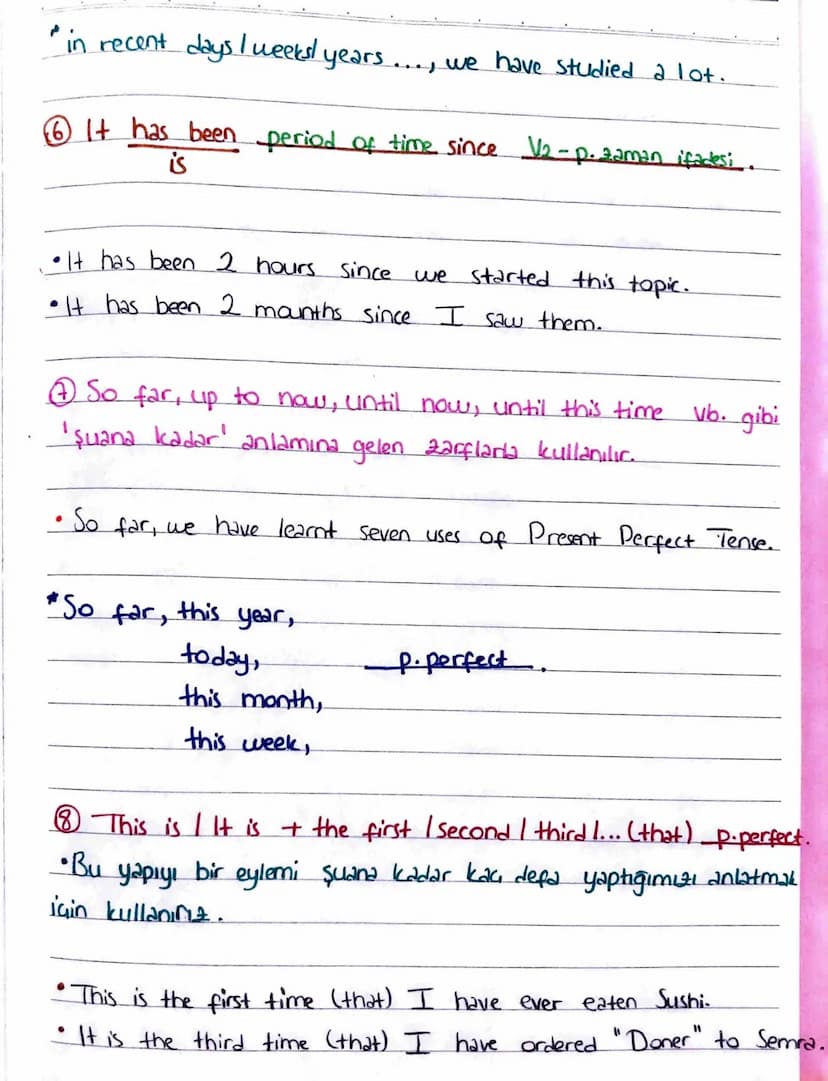 * in recent days / weeks / years ..., we have studied a lot.
⑥ It has been period of time since V2 - p. zaman ifadesi.
is
• It has been 2 hours since we started this topic.
• It has been 2 mounths since I saw them.
⑦ So far, up to now, until now, until this time vb. gibi
'şuana kadar' anlamına gelen zarflarla kullanılır.
• So far, we have learnt seven uses of Present Perfect Tense.
* So far, this year,
today, p. perfect.
this month,
this week,
⑧ This is / It is + the first / second / third /... (that) p. perfect.
• Bu yapıyı bir eylemi şuana kadar kaç defa yaptığımızı anlatmak
için kullanırız.
• This is the first time (that) I have ever eaten Sushi.
• It is the third time (that) I have ordered "Doner" to Semra.